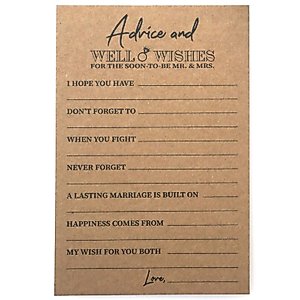 Advice and
WELL WISHES
FOR THE SOON-TO-BE MR. & MRS.
I HOPE YOU HAVE
DON'T FORGET TO
WHEN YOU FIGHT
NEVER FORGET
A LASTING MARRIAGE IS BUILT ON
HAPPINESS COMES FROM
MY WISH FOR YOU BOTH
Love,